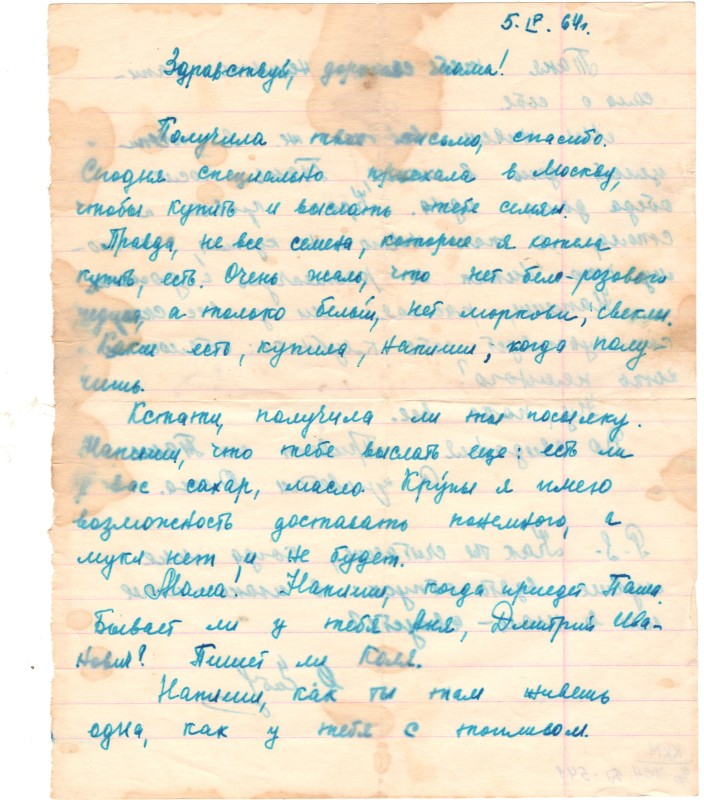 5. IV. 64г.
Здравствуй, дорогая мама!
Получила твое письмо, спасибо.
Сегодня специально приехала в Москву,
чтобы купить и выслать тебе семян.
Правда, не все семена, которые я хотела
купить, есть. Очень жаль, что нет бело-розового
а только белый, нет моркови, свеклы.
Какие есть, купила, напиши, когда полу-
чишь.
Кстати, получила ли ты посылку.
Напиши, что тебе выслать еще: есть ли
у вас сахар, масло. Крупы я имею
возможность доставать понемного, а
муки нет и не будет.
Мама. Напиши, когда приедет Паша.
Бывает ли у тебя Аня, - Дмитрий Ива-
нович? Пишет ли Коля.
Напиши, как ты там живешь
одна, как у тебя с топливом.